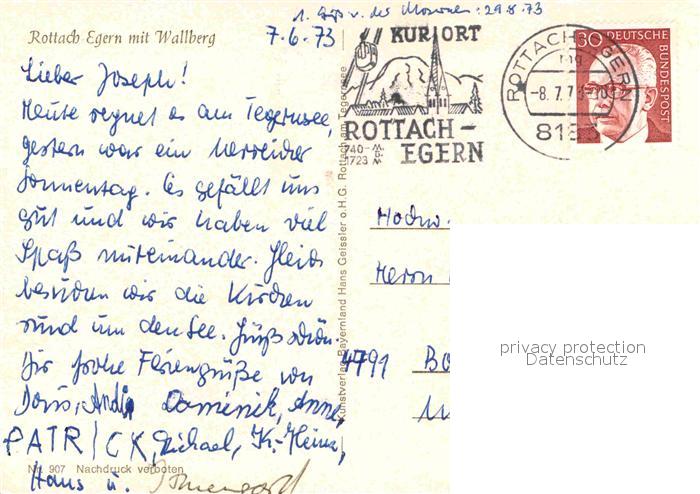 1. Grüß v. der Mosonen: 29.8.73
Rottach Egern mit Wallberg
7.6.73
Lieber Joseph!
Heute regnet es am Tegernsee,
gestern war ein herrlicher
Sonnentag. Es gefällt uns
gut und wir haben viel
Spaß miteinander. Gleich
besuchen wir die Kirchen
rund um den See. Grüß schön.
Dir frohe Feriengrüße von
Doris, Andi, Dominik, Anne,
PATRICK, Michael, K.-Heinz,
Hans u.
Nr. 907 Nachdruck verboten
Kunstverlag Bayernland Hans Geissler o.H.G. Rottach am Tegernsee
KURORT
ROTTACH-
EGERN
740-
1723 m
ROTTACH-EGERN
-8.7.73-10
818
30 DEUTSCHE
BUNDESPOST
Hochw.
Herrn
4791 Bo
privacy protection
Datenschutz